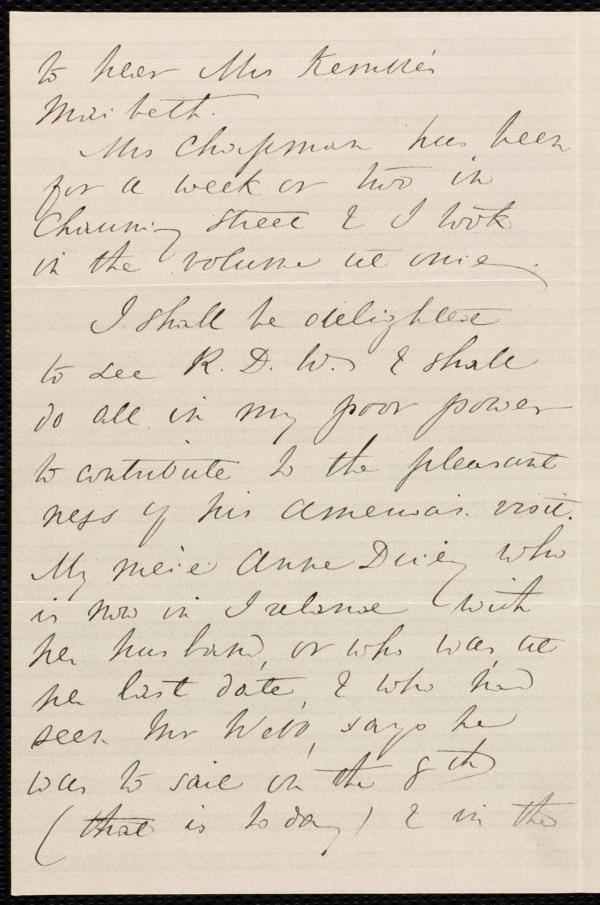 to hear Mrs Kemble's
Macbeth.
Mrs Chapman has been
for a week or two in
Chauncy Street & I took
in the volume at once.
I shall be delighted
to see R. D. W. & shall
do all in my poor power
to contribute to the pleasant
ness of his American visit.
My niece Anne Dicey who
is now in Ireland with
her husband, or who was, at
her last date, & who had
seen Mr Webb, says he
was to sail on the 8th
(that is to day) & in the